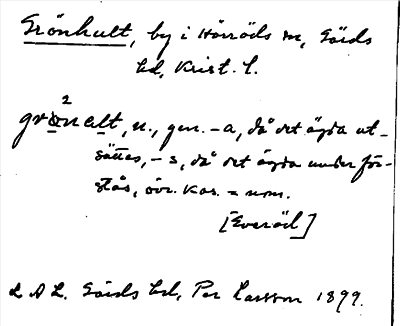 Grönhult, by i Hörröds sn, Gärds
hd, Krist. l.
grönelt, n., gen. -a, då det ägda ut-
sättes, -s, då det ägda under för-
stås, övr. kas. = nom.
[Everöd]
L A L. Gärds hd, Per Larsson 1899.